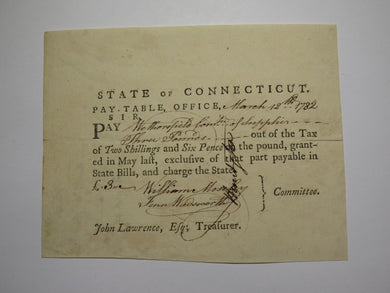 STATE OF CONNECTICUT.
PAY-TABLE, OFFICE, March 12th 1782
SIR,
PAY Wethersfield Comtee of Supplies
Three Pounds out of the Tax
of Two Shillings and Six Pence on the pound, grant-
ed in May last, exclusive of that part payable in
State Bills, and charge the State.
William Moseley
Fenn Wadsworth } Committee.
John Lawrence, Esq; Treasurer.